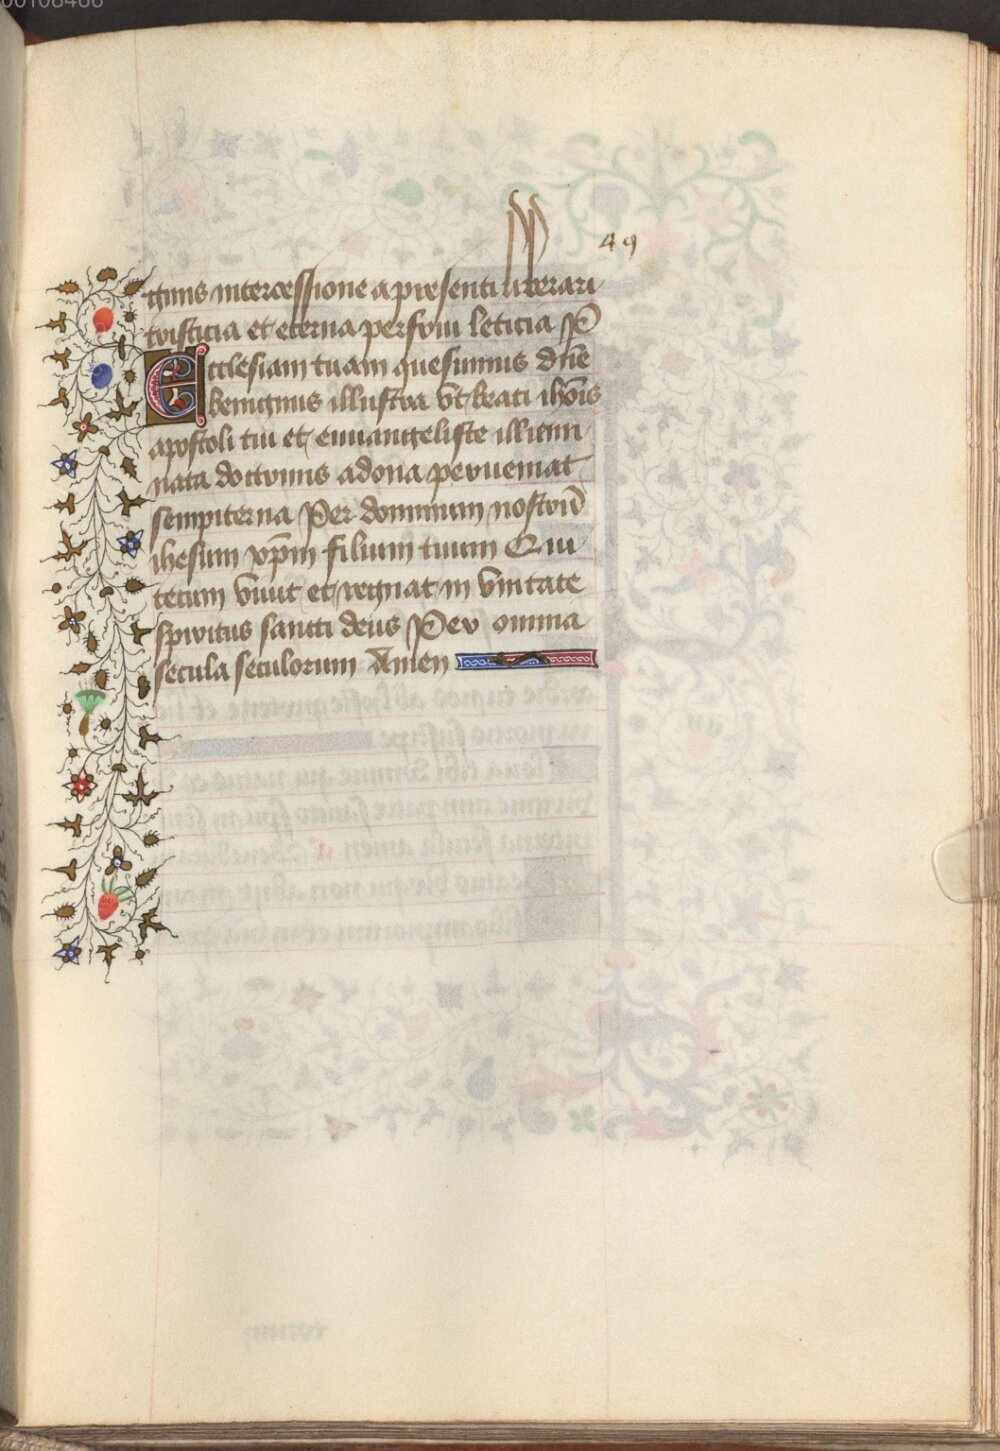 00108466
49
ginis intercessione a presenti liberari
tristicia et eterna perfrui leticia P
Ecclesiam tuam quesumus dñe
benignus illustra Vt beati ioh̄is
apostoli tui et euuangeliste illumi
nata doctrinis ad dona perueniat
sempiterna Per dominum nostrū
ihesum xp̄m filium tuum Qui
tecum viuit et regnat in vnitate
spiritus sancti deus Per omnia
secula seculorum Amen